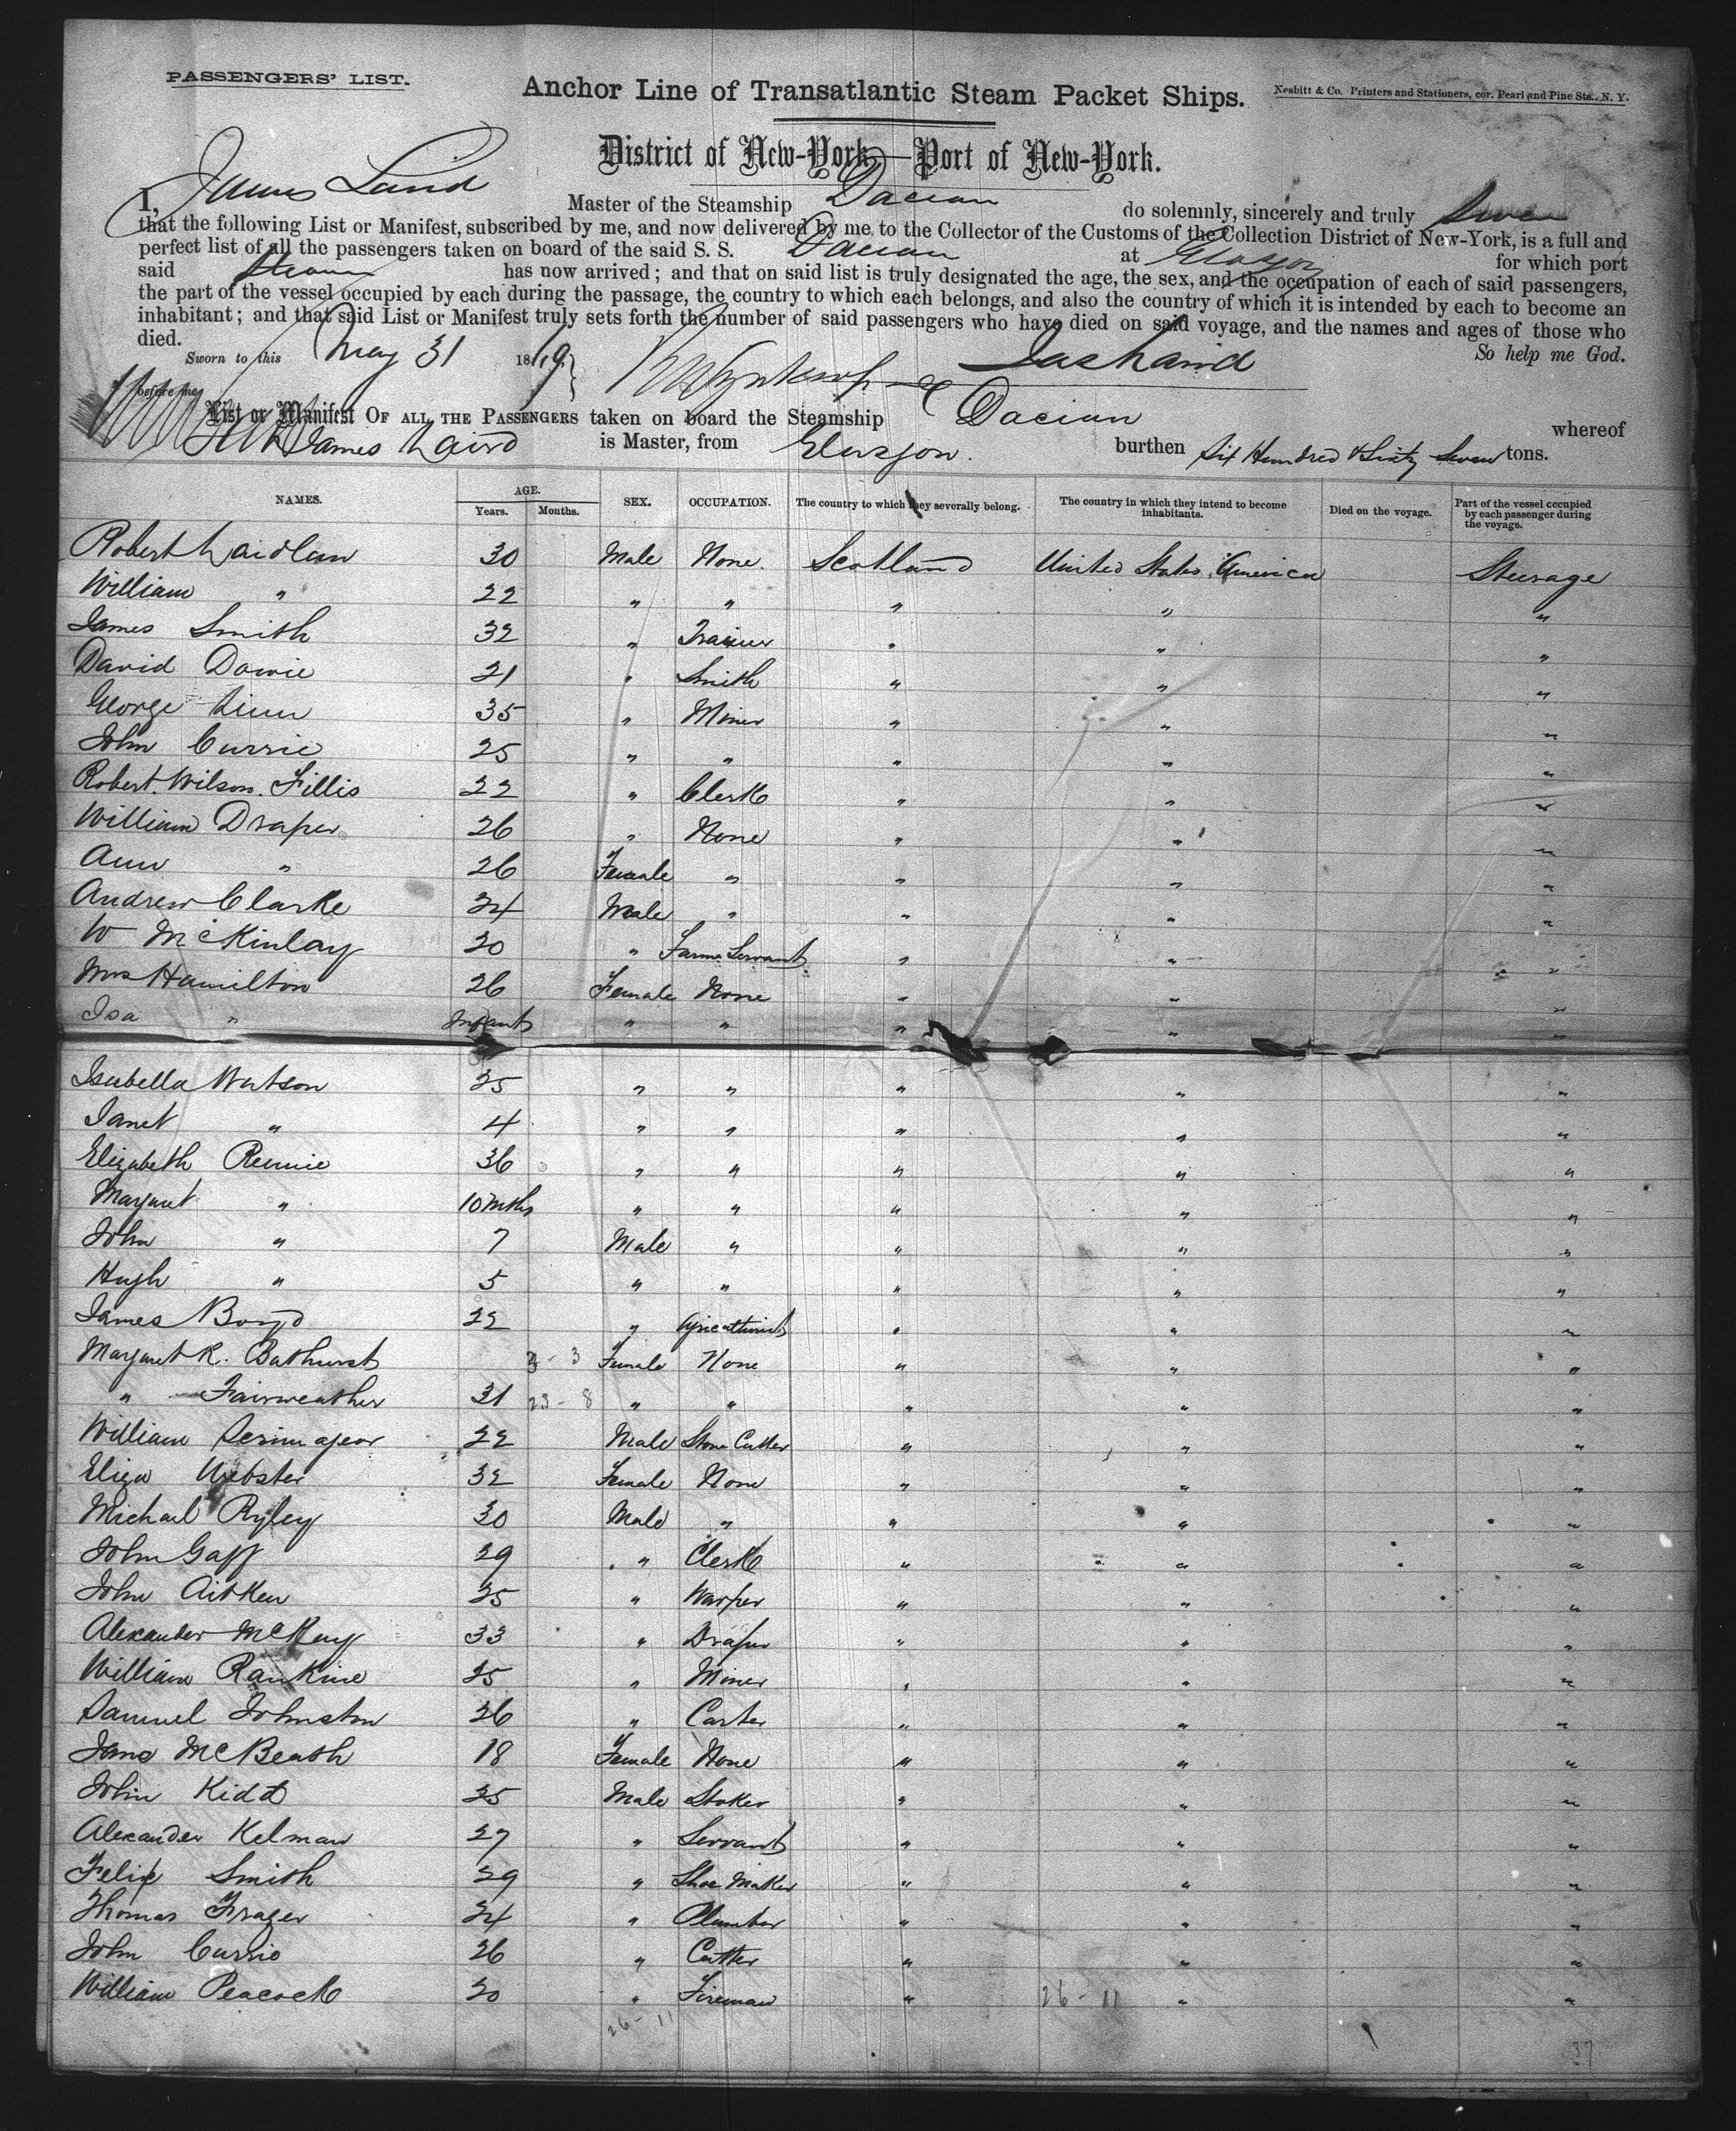 PASSENGERS' LIST.
Anchor Line of Transatlantic Steam Packet Ships.
Nesbitt & Co. Printers and Stationers, cor. Pearl and Pine Sts., N. Y.
District of New-York—Port of New-York.
I, James Laird Master of the Steamship Dacian do solemnly, sincerely and truly Swear
that the following List or Manifest, subscribed by me, and now delivered by me to the Collector of the Customs of the Collection District of New-York, is a full and
perfect list of all the passengers taken on board of the said S. S. Dacian at Glasgow for which port
said Steamer has now arrived; and that on said list is truly designated the age, the sex, and the occupation of each of said passengers,
the part of the vessel occupied by each during the passage, the country to which each belongs, and also the country of which it is intended by each to become an
inhabitant; and that said List or Manifest truly sets forth the number of said passengers who have died on said voyage, and the names and ages of those who
died. So help me God.
Sworn to this May 31 1879 Jas Laird
before me
List or Manifest OF ALL THE PASSENGERS taken on board the Steamship Dacian whereof
James Laird is Master, from Glasgow. burthen Six Hundred & Sixty Seven tons.
NAMES. AGE. Years. Months. SEX. OCCUPATION. The country to which they severally belong. The country in which they intend to become inhabitants. Died on the voyage. Part of the vessel occupied by each passenger during the voyage.
Robert Laidlaw 30 Male None Scotland United States America Steerage
William " 22 " " " " "
James Smith 32 " " " "
David Dowie 21 " Smith " " "
George Linn 35 " Miner " " "
John Currie 25 " " " " "
Robert. Wilson. Fillis 22 " Clerk " " "
William Draper 26 " None " " "
Ann " 26 Female " " " "
Andrew Clarke 24 Male " " " "
W McKinlay 20 " Farm Servant " " "
Mrs Hamilton 26 Female None " " "
Isa " Infant " " " " "
Isabella Watson 25 " " " " "
Janet " 4 " " " " "
Elizabeth Rennie 36 " " " " "
Margaret " 10 mths " " " " "
John " 7 Male " " " "
Hugh " 5 " " " " "
James Boyd 22 " Agriculturist " " "
Margaret R. Bathurst 3 - 3 Female None " " "
" Fairweather 31 23 - 8 " " " " "
William Scrimageor 22 Male Stone Cutter " " "
Eliza Webster 32 Female None " " "
Michael Ryley 30 Male " " " "
John Gaff 29 " Clerk " " "
John Aitken 25 " Warper " " "
Alexander McKay 33 " Draper " " "
William Rankine 25 " Miner " " "
Samuel Johnston 26 " Carter " " "
Jane McBeath 18 Female None " " "
John Kidd 25 Male Stoker " " "
Alexander Kelman 27 " Servant " " "
Felix Smith 29 " Shoe Maker " " "
Thomas Frazer 24 " Plumber " " "
John Currie 26 " Cutter " " "
William Peacock 20 " Fireman " 26 - 11 " "
26 - 11
37